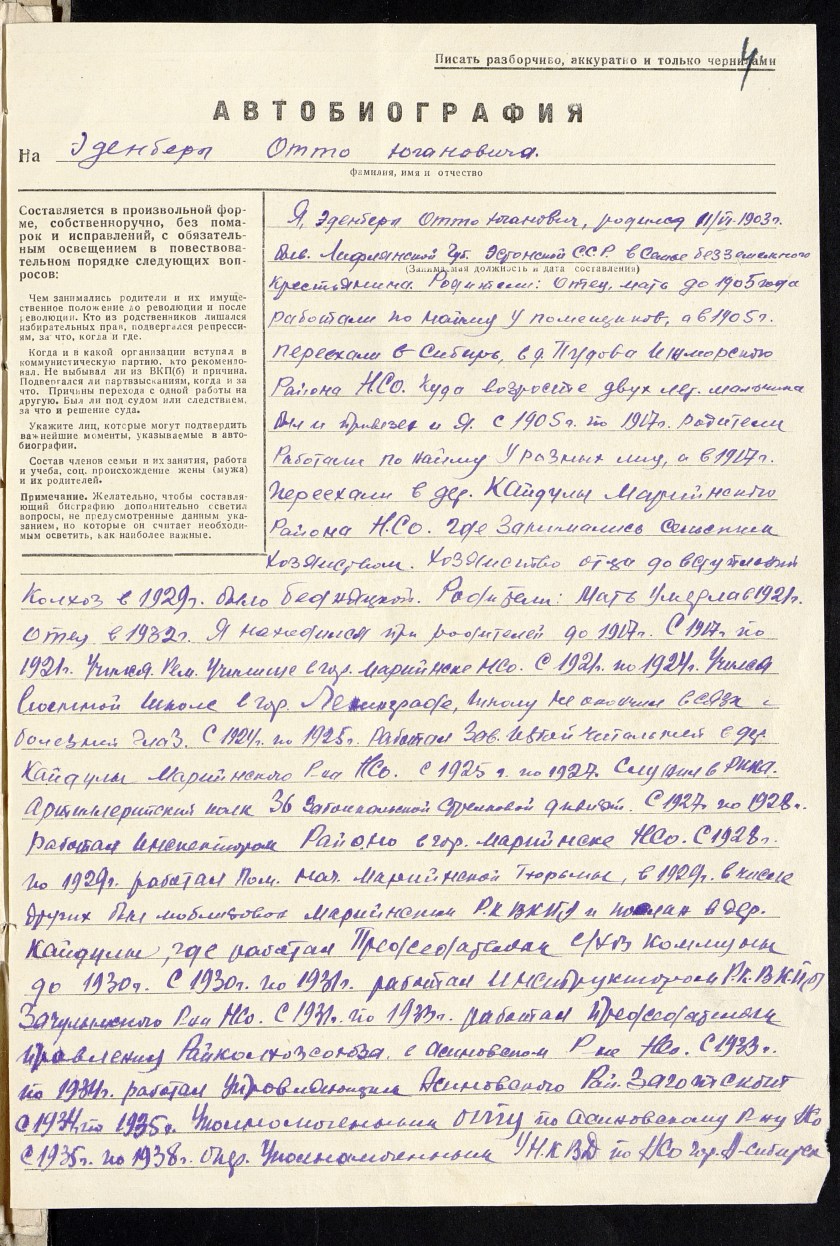 4
Писать разборчиво, аккуратно и только чернилами
АВТОБИОГРАФИЯ
На Эденберг Отто Юганович.
фамилия, имя и отчество
Составляется в произвольной фор-
ме, собственноручно, без пома-
рок и исправлений, с обязатель-
ным освещением в повествова-
тельном порядке следующих воп-
росов:
Чем занимались родители и их имуще-
ственное положение до революции и после
революции. Кто из родственников лишался
избирательных прав, подвергался репресси-
ям, за что, когда и где.
Когда и в какой организации вступал в
коммунистическую партию, кто рекомендо-
вал. Не выбывал ли из ВКП(б) и причина.
Подвергался ли партвзысканиям, когда и за
что. Причины перехода с одной работы на
другую. Был ли под судом или следствием,
за что и решение суда.
Укажите лиц, которые могут подтвердить
важнейшие моменты, указываемые в авто-
биографии.
Состав членов семьи и их занятия, работа
и учеба, соц. происхождение жены (мужа)
и их родителей.
Примечание. Желательно, чтобы составля-
ющий биографию дополнительно осветил
вопросы, не предусмотренные данным ука-
занием, но которые он считает необходи-
мым осветить, как наиболее важные.
Я, Эденберг Отто Юганович, родился 11/VI-1903 г.
быв. Лифлянской Губ. Эстонской ССР. в семье безземельного
(Занимаемая должность и дата составления)
Крестьянина. Родители: Отец, мать до 1905 года
работали по найму у помещиков, а в 1905 г.
переехали в Сибирь, в д. Пудова Ишморского
Района НСО. Куда возрасте двух лет. мальчика
был и привезен и Я. С 1905 г. по 1917 г. родители
Работали по найму у разных лиц, а в 1917 г.
переехали в дер. Кайдулы Мариинского
Района НСО. где занимались сельским
хозяйством. Хозяйство отца до вступления
Колхоз в 1929 г. было бедняцкой. Родители: Мать умерла в 1921 г.
отец в 1932 г. Я находился при родителей до 1917 г. С 1917 г. по
1921 г. Учился Рем. Училище в гор. Мариинске НСО. С 1921 г. по 1924 г. Учился
в военной школе в гор. Ленинграде, школу не окончил в связи с
болезнии глаз. С 1924 г. по 1925 г. работал Зав. Избой читальней в дер.
Кайдулы Мариинского Р-на НСо. С 1925 г. по 1927. Служил в РККА.
Артиллерийский полк 36 Забайкальской стрелковой дивизии. С 1927 г. по 1928 г.
работал инспектором Райо.но в гор. Мариинске НСо. С 1928 г.
по 1929 г. работал Пом. нач. Мариинской Тюрьмы, в 1929 г. в числе
других был мобилизован Мариинским Р.К ВКП/б и послан в дер.
Кайдулы, где работал Председателем С/хоз Коммуны
до 1930 г. С 1930 г. по 1931 г. работал инструктором Р.К. ВКП/б/
Зачулымского Р-на НСо. С 1931 г. по 1933 г. работал Председателем
правления Райколхозсоюза, в Асиновском Р-не НСо. С 1933 г.
по 1934 г. работал Управляющим Асиновского Рай. Заготскот
С 1934 г. по 1935 г. Уполномоченным по Асиновскому Р-ну НСо
С 1935 г. по 1938 г. опер. Уполномоченным УНКВД по НСо гор. Н-Сибирск